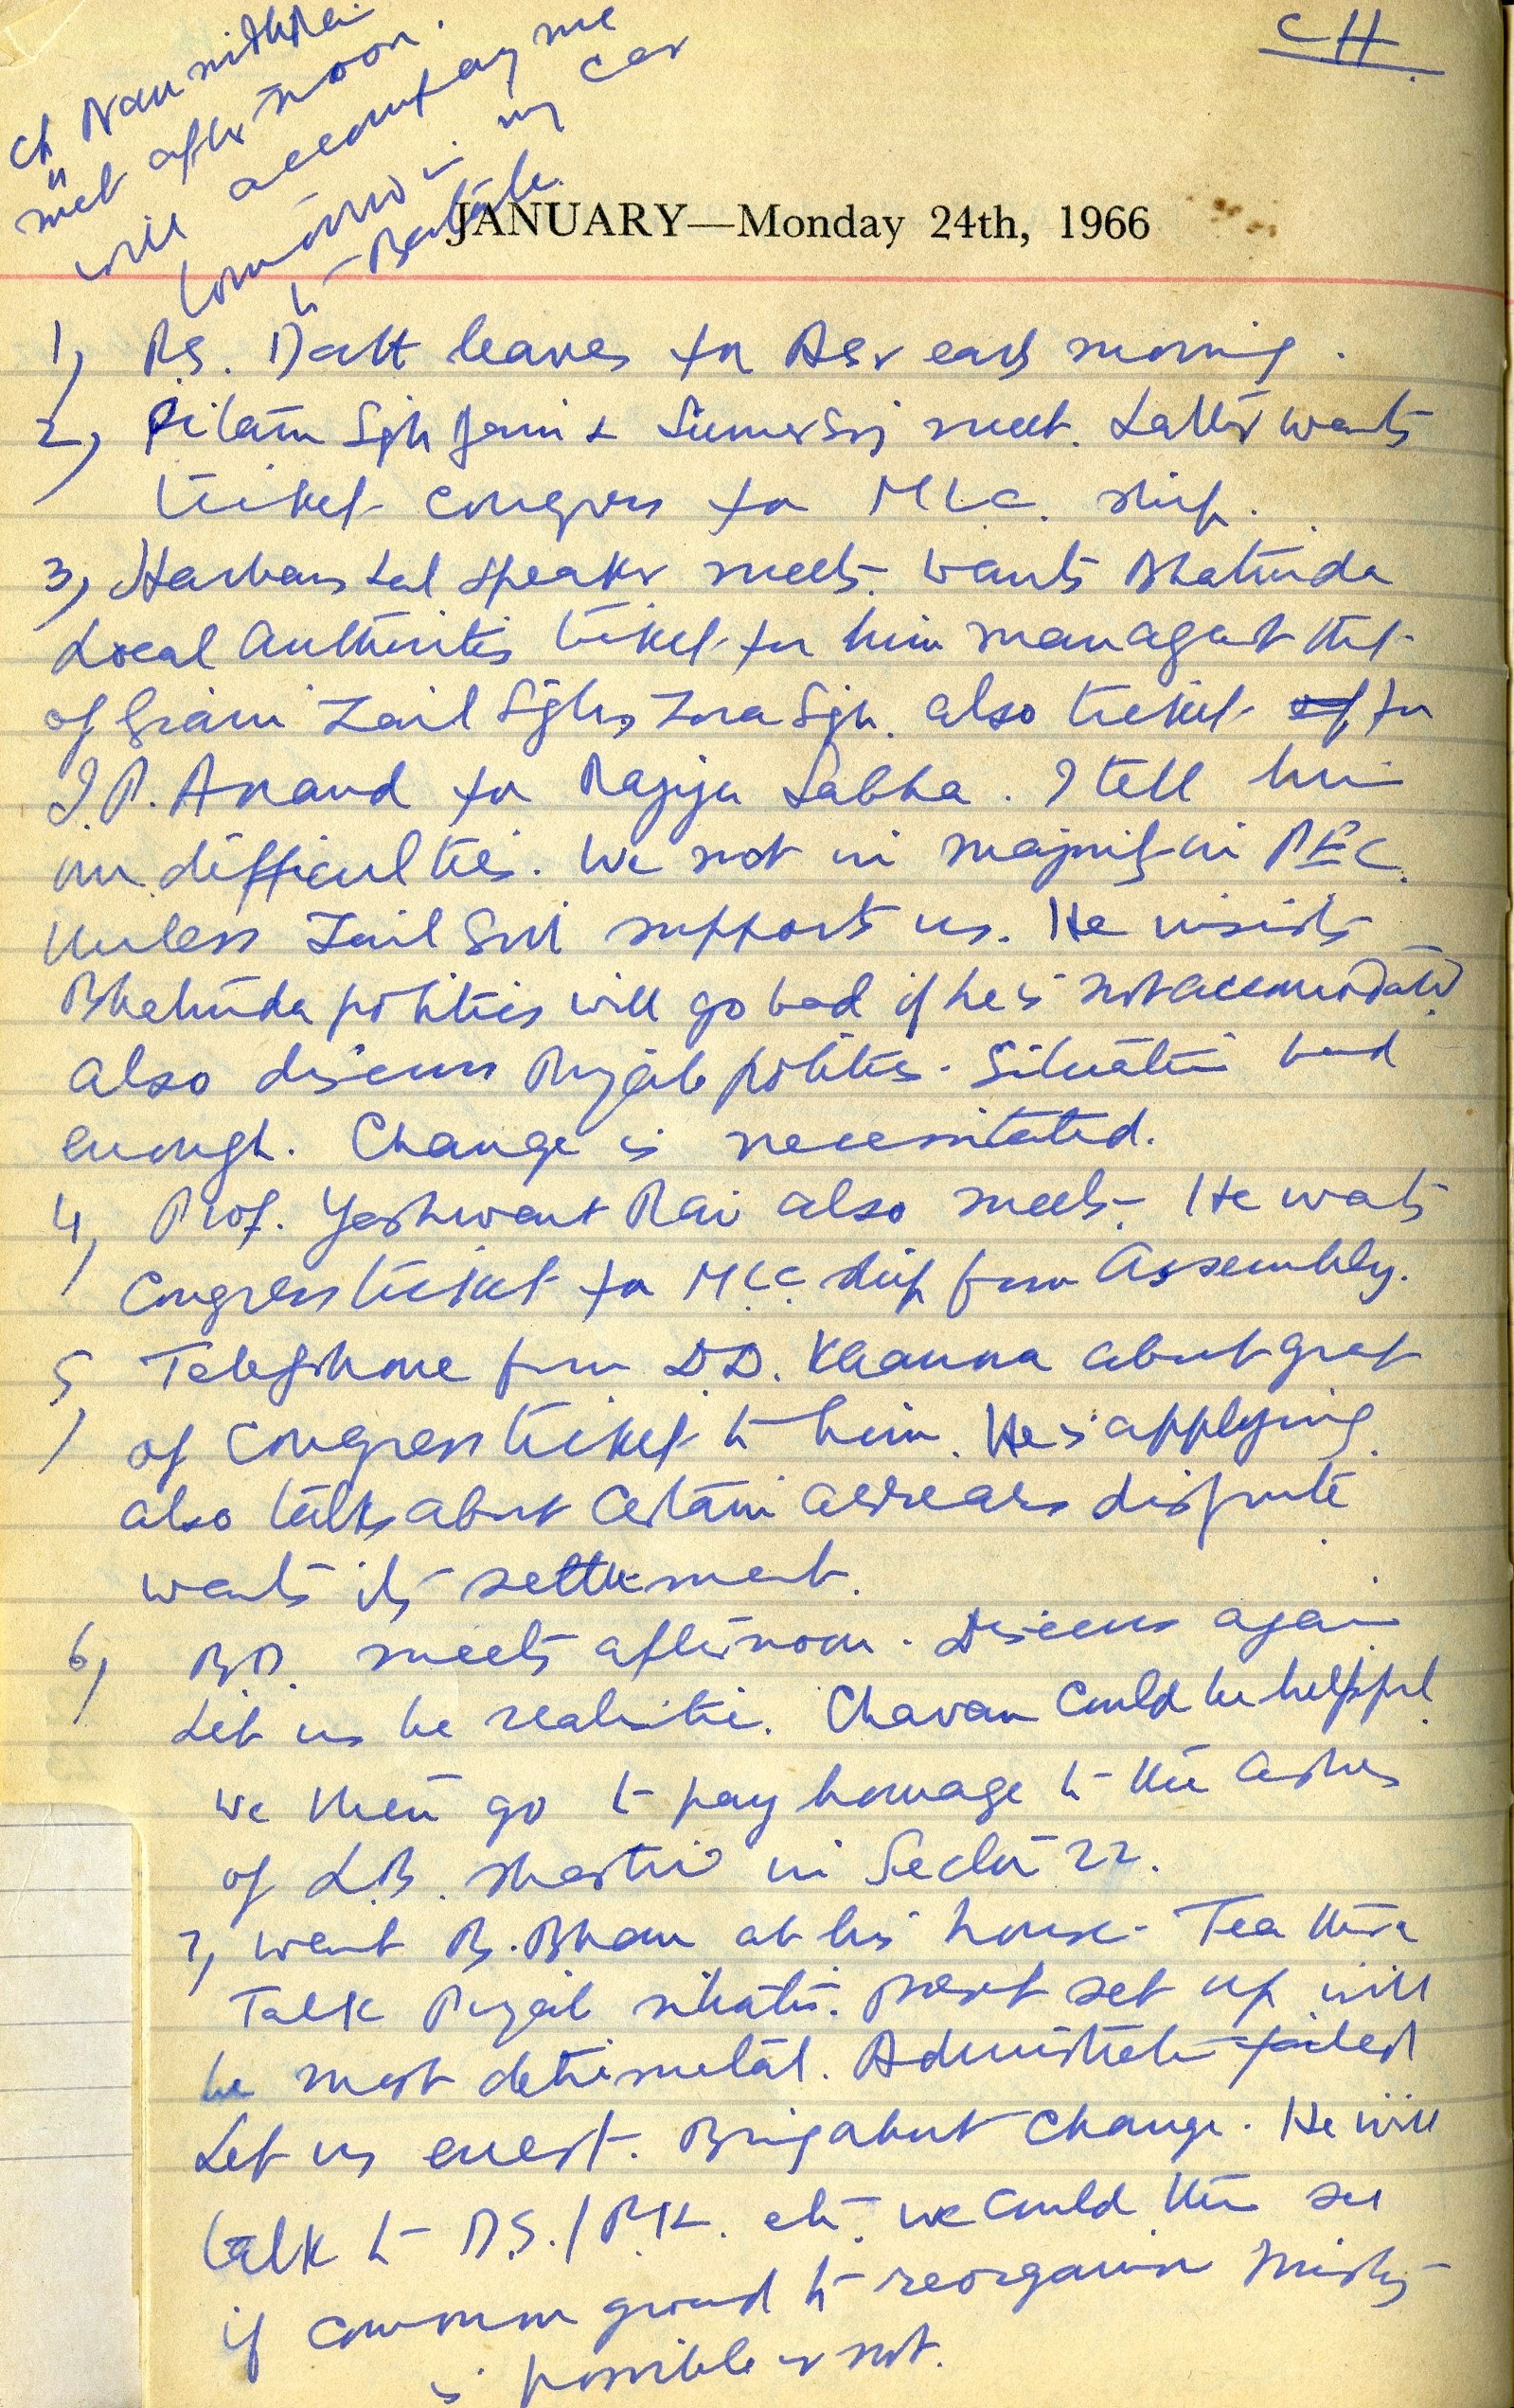 CH
Ch Naunidhrai
met afternoon.
will accompany me
tomorrow in my car
to Batala.
JANUARY—Monday 24th, 1966
1, P.S. Datt leaves for Asr early morning.
2, Pitam Sgh & meet. Latter wants
ticket congress for M.L.C. ship.
3, Harbans Lal speaker meets. wants Bhatinda
Local Authorities ticket for him that
of Giani Zail Sgh, Zora Sgh. also ticket of for
J.P. Anand for Rajya Sabha. I tell him
our difficulties. We not in majority in PEC.
Unless Zail Singh supports us. He insists
Bhatinda politics will go bad if he is not accomodated
Also discuss Punjab politics. Situation bad
enough. Change is necessitated.
4, Prof. Yashwant Rai also meets. He wants
Congress ticket for M.L.C. ship from Assembly.
5, Telephone from D.D. Khanna about grant
of Congress ticket to him. He is applying.
also talks about certain arrears dispute
wants its settlement.
6, B.D. meets afternoon. Discuss again
Let us be realistic. Chavan could be helpful
We then go to pay homage to the ashes
of L.B. Shastri in Sector 22.
7, went B. Bhan at his house. Tea there
Talk Punjab situation. Present set up will
be most detrimental. Administration failed
Let us exert. Bring about change. He will
talk to D.S./P.K. etc. we could then see
if common ground to reorganise Ministry
is possible or not.